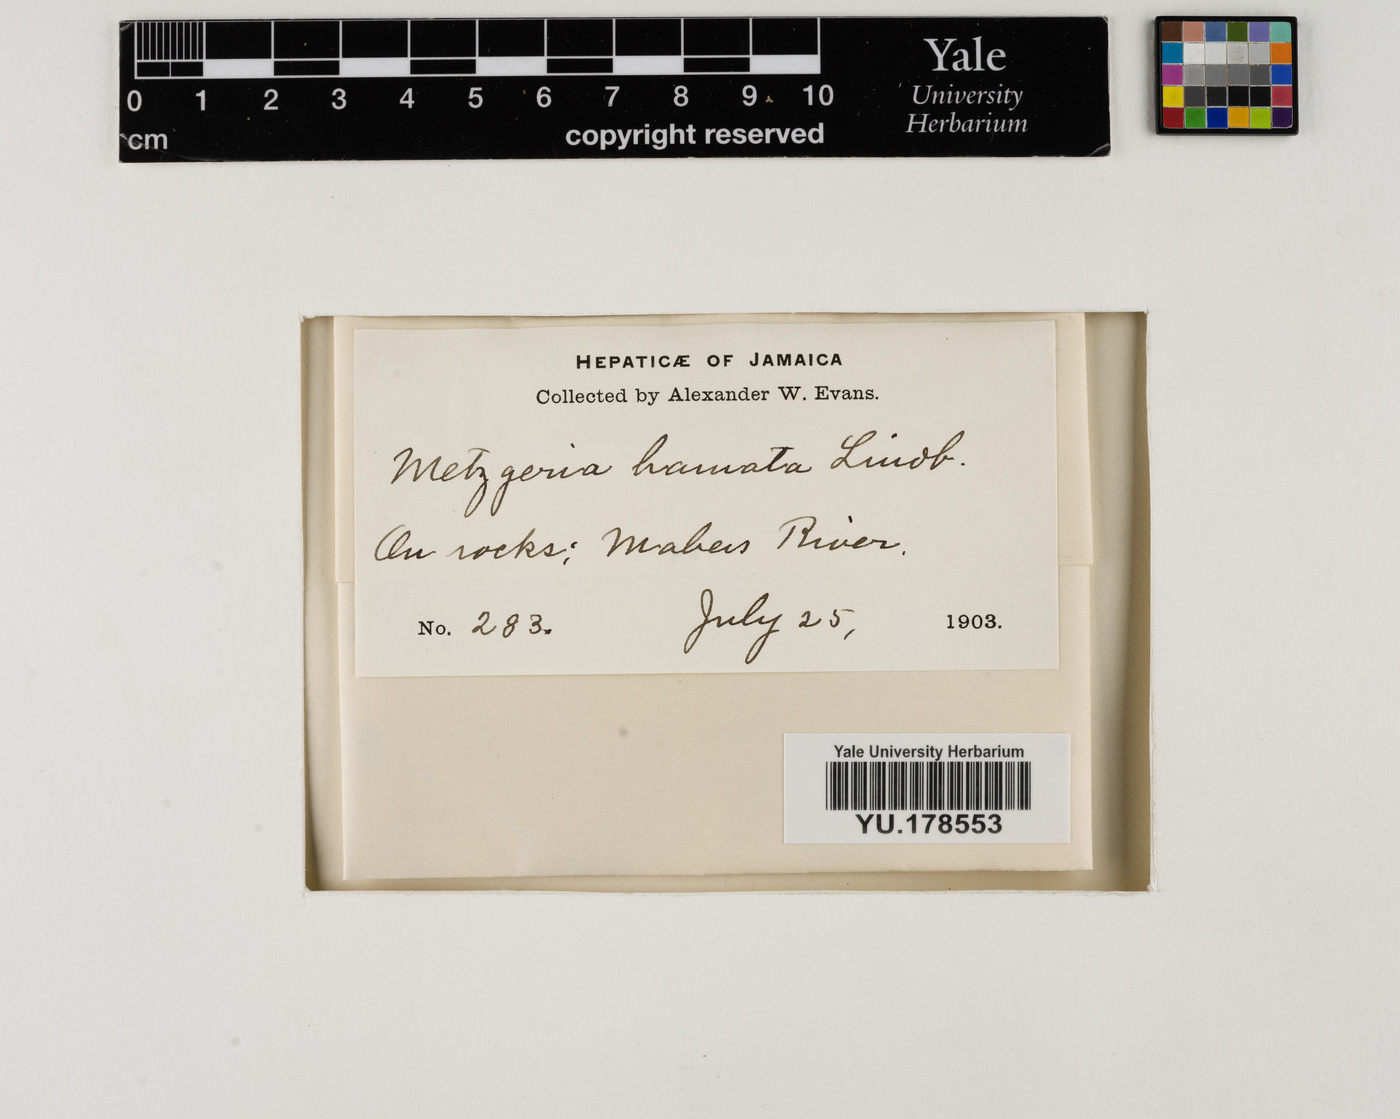 0 1 2 3 4 5 6 7 8 9 10
cm
copyright reserved
Yale
University
Herbarium
HEPATICÆ OF JAMAICA
Collected by Alexander W. Evans.
Metzgeria hamata Lindb.
On rocks; Mabess River.
No. 283. July 25, 1903.
Yale University Herbarium
YU.178553